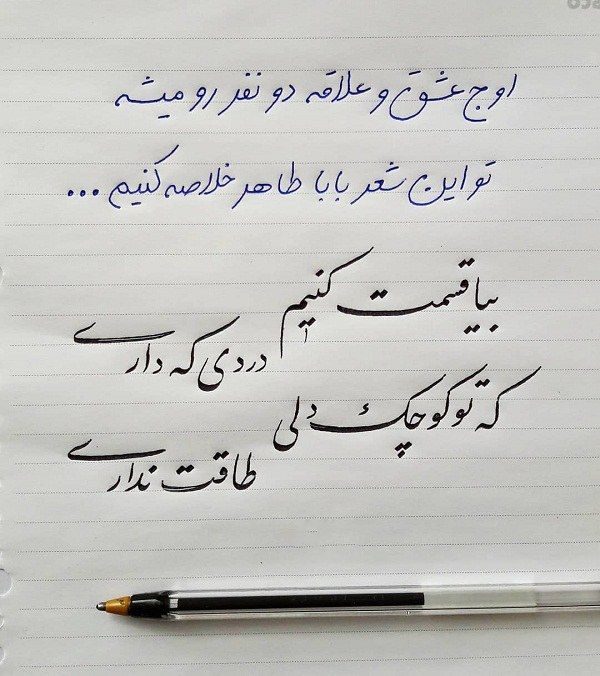 اوج عشق و علاقه دو نفر رو میشه
تو این شعر بابا طاهر خلاصه کنیم ...
بیا قسمت کنیم
دردی که داری
که تو کوچک دلی
طاقت نداری